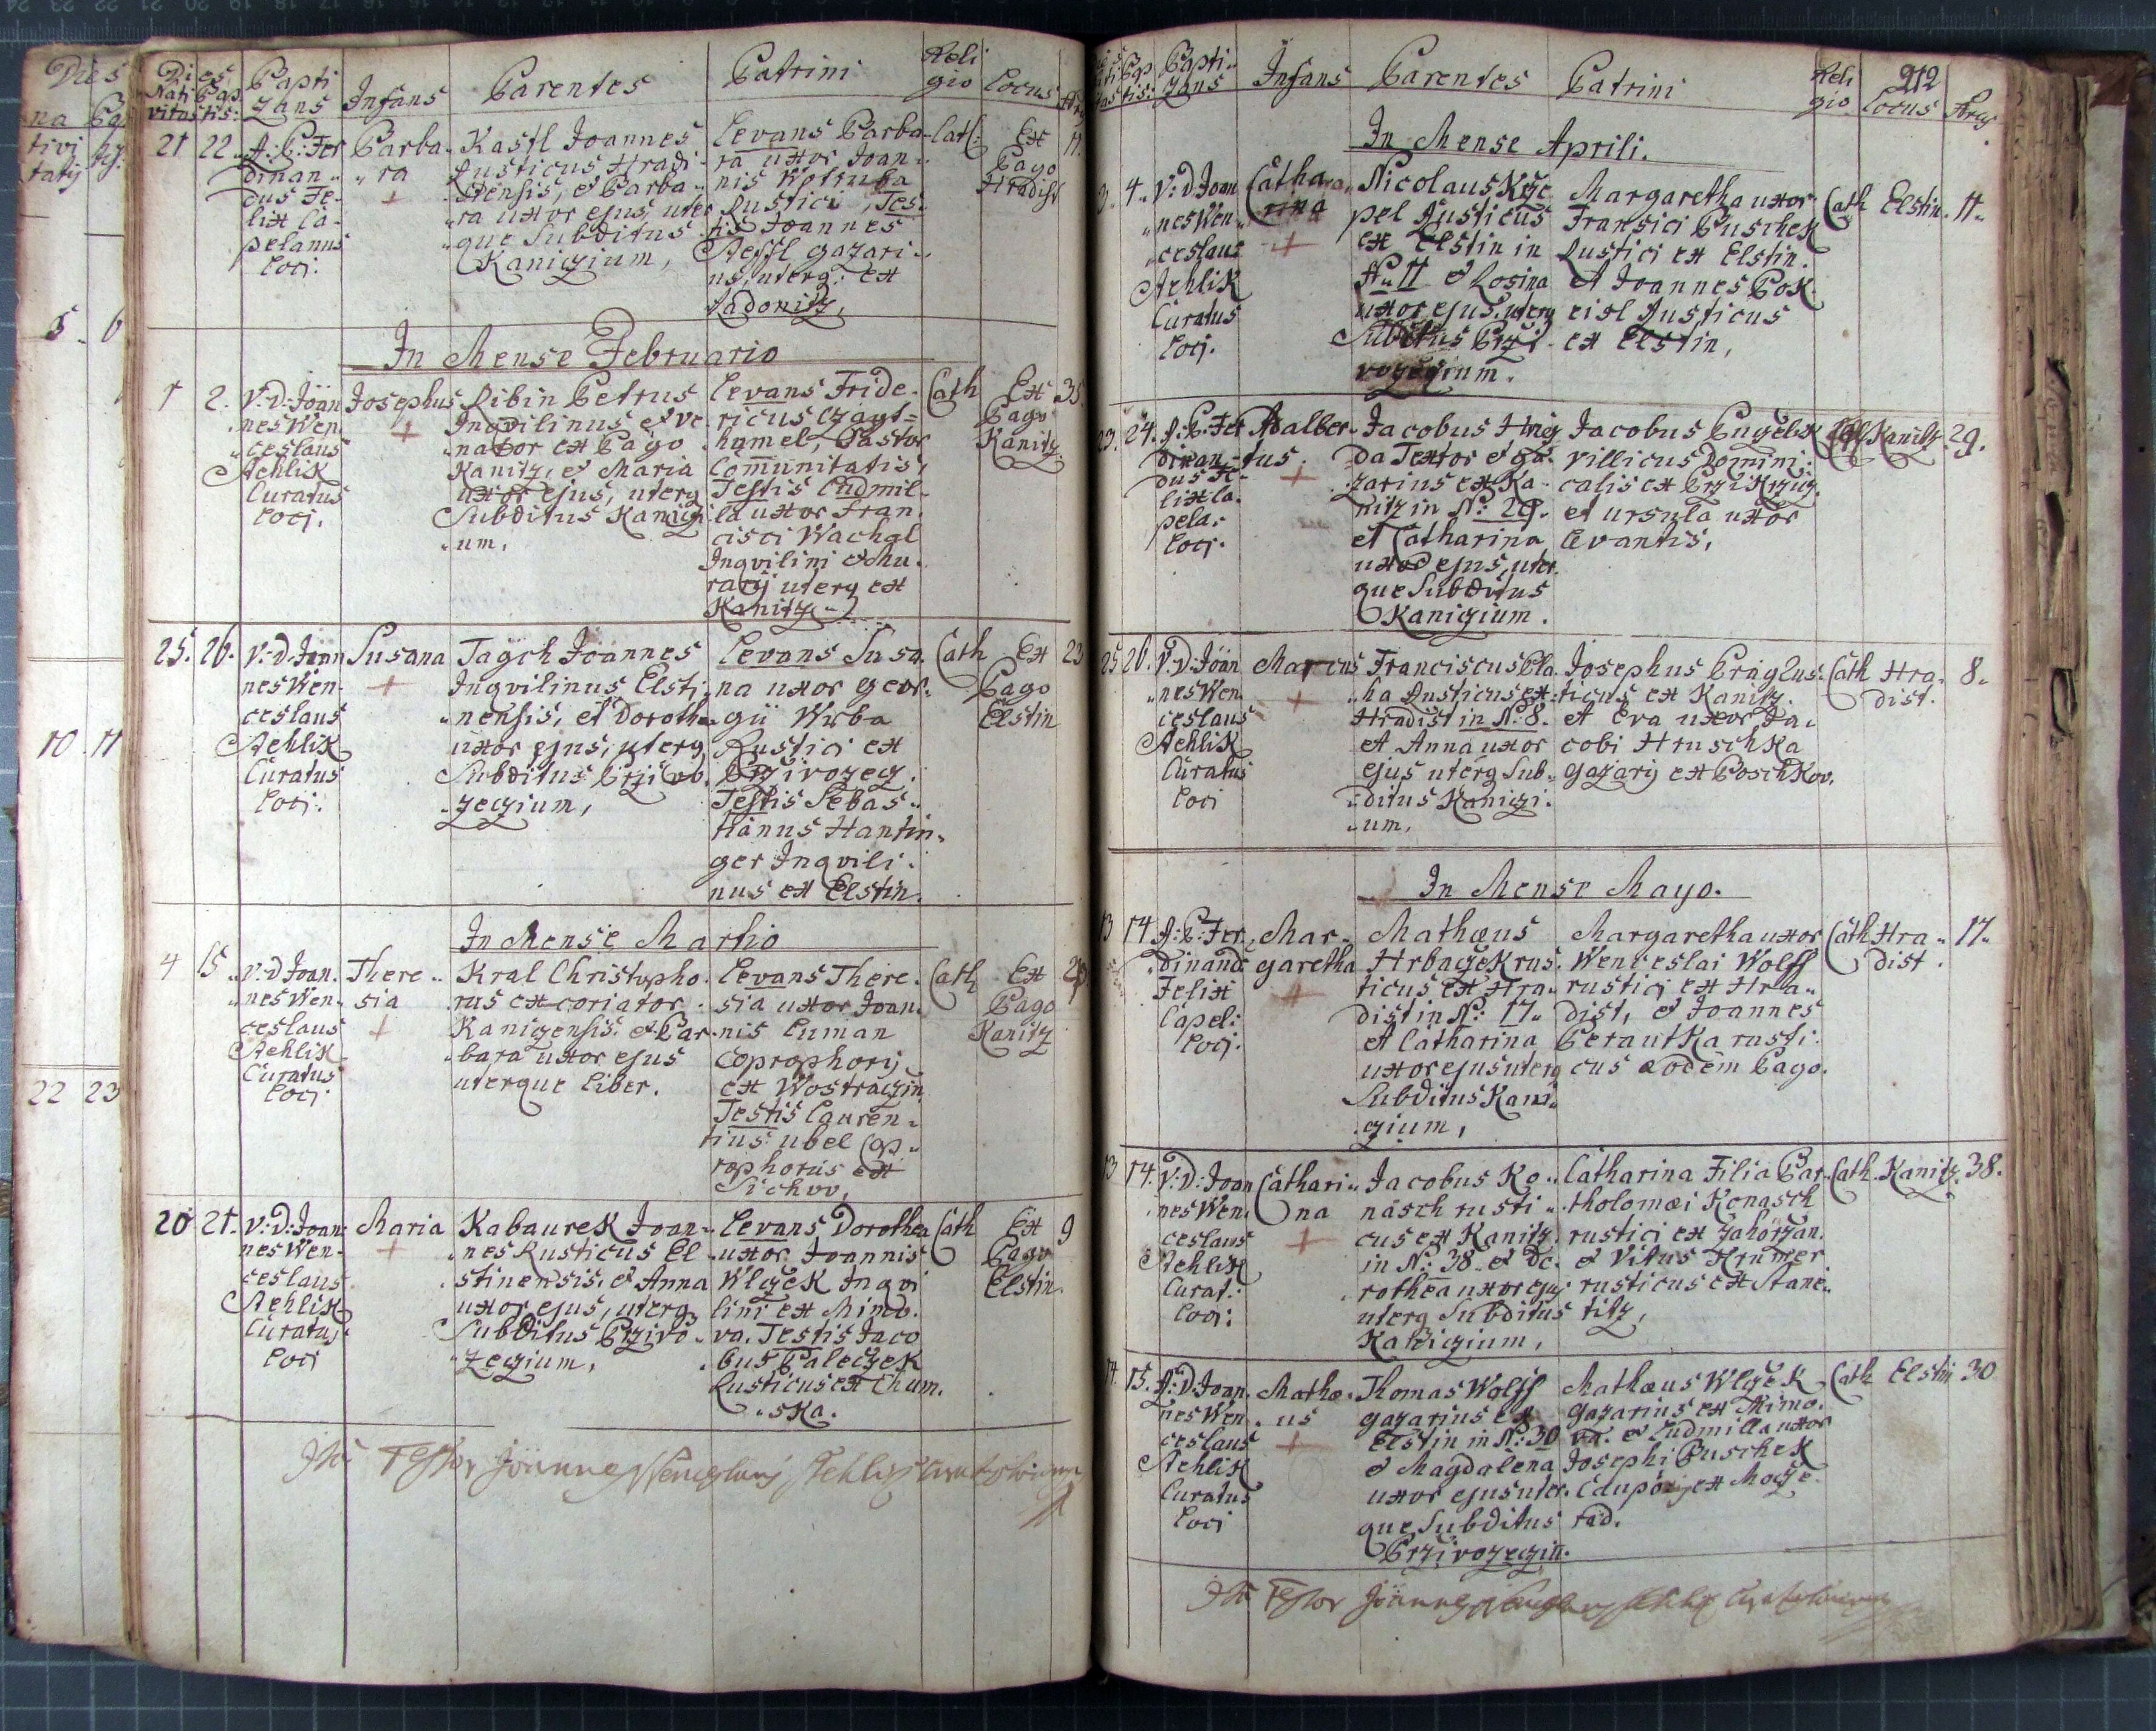 Dies
na
trivi
tatij
5 6
10 11
22 23
Dies
Nati Bap
vitas tis:
Bapti
zans
Infans
Parentes
Patrini
Reli
gio
Locus
21 22 A:P:Fer
dinan
dus Fe-
lix Ca-
pelanus
loci.
Barba
ra
Kastl Joannes
Rusticus Hradi
stensis, et Barba
ra uxor ejus, uter
que Subditus
Kaniczium,
Levans Barba
ra uxor Joan
nis Wottruba
Rustici, Tes
tis Joannes
Ressl gazari
us, uterq: ex
Ladonitz,
Cath:
Ex
Pago
Hradist
11.
In Mense Februario
1 2. V:D:Joan
nes Wen
ceslaus
Rehlik
Curatus
loci.
Josephus
Ribin Petrus
Inqvilinus et ve
nator ex Pago
Kanitz, et Maria
uxor ejus, uterq
Subditus Kaniczi
um,
Levans Fride
ricus Czayt=
hamel, Pastor
Communitatis,
Testis Ludmil
la uxor Fran
cisci Wachal
Inqvilini et Mu
rarij uterq ex
Kanitz
Cath
Ex
Pago
Kanitz
35.
25. 26. V:D:Joan
nes Wen
ceslaus
Rehlik
Curatus
loci.
Susana
Taych Joannes
Inqvilinus Elsti
nensis, et Dorothea
uxor ejus, uterq
Subditus Przivo
zeczium,
Levans Susa
na uxor Geor
gii Wrba
Rustici ex
Przivozecz.
Testis Sebas
tianus Hantin
ger Inqvili
nus ex Elstin.
Cath
Ex
Pago
Elstin
23
In Mense Martio
4 15 V:D Joan
nes Wen
ceslaus
Rehlik
Curatus
loci
There
sia
Kral Christopho
rus excoriator
Kanizensis, et Bar
bara uxor ejus
uterque liber.
Levans There
sia uxor Joan
nis Luman
Coprophorij
ex Wostraczin
Testis Lauren
tius ubel Cop
rophorus ex
Sichow,
Cath
Ex
Pago
Kanitz
20 21. V:D:Joan
nes Wen
ceslaus
Rehlik
Curatus
loci
Maria
Kabaurek Joan
nes Rusticus El
stinensis, et Anna
uxor ejus, uterq
Subditus Przivo
zeczium,
Levans Dorothea
uxor Joannis
Wlczek Inqvi
lini ex Mimo
va. Testis Jaco
bus Paleczek
Rusticus ex Chum
ska.
Cath
Ex
Pago
Elstin
9
Ita Testor Joannes Wenceslaus Rehlik
Bapti
zans
Infans
Parentes
Patrini
Reli
gio
212
Locus
In Mense Aprili.
3. 4. V:D Joan
nes Wen
ceslaus
Rehlik
Curatus
loci.
Catha
rina
Nicolaus Kze
pel Rusticus
ex Elstin in
N. 11 et Rosina
uxor ejus, uterq
Subditus Przi
vozeczium.
Margaretha uxor
Fransici Puschek
Rustici ex Elstin.
et Joannes Pok
eisl Rusticus
ex Elstin,
Cath
Elstin
11
23. 24. A:P:Fer
dinan
dus Fe
lix Ca
pela
loci.
Adalber
tus
Jacobus Hwiz
da Textor et ga
zarius ex Ka
nitz in N: 29.
et Catharina
uxor ejus, uter
que Subditus
Kanigium.
Jacobus Puzelik
villicus Domini
calis ex Przikrzicz.
et Ursula uxor
Levantis,
Kanitz
29.
25 26. V:D:Joan
nes Wen
ceslaus
Rehlik
Curatus
loci
Marcus
Franciscus Bla
ha Rusticus ex
Hradist in N: 8.
et Anna uxor
ejus uterq Sub
ditus Kaniczi
um,
Josephus Prag Rus
ticus ex Kanitz.
et Eva uxor Ja
cobi Hruschka
gazarij ex Poschkov.
Cath
Hra
dist.
8.
In Mense Mayo.
13 14. A:P:Fer
dinand
Felix
Capel:
loci.
Mar
garetha
Mathæus
Hrbaczek rus
ticus ex Hra
dist in N: 17
et Catharina
uxor ejus uterq
Subditus Kani
czium,
Margaretha uxor
Wenceslai Wolff
rustici ex Hra
dist, et Joannes
Berautka rusti
cus æodem Pago.
Cath
Hra
dist.
17
13 14. V:D:Joan
nes Wen
ceslaus
Rehlik
Curat:
loci:
Cathari
na
Jacobus Ko
nasch rusti
cus ex Kanitz
in N: 38 et Do
rothea uxor ejus
uterq Subditus
Kaniczium,
Catharina Filia Bar
tholomæi Konasch
rustici ex Zahorzan.
et Vitus Krumer
rusticus ex Stane
titz,
Cath.
Kanitz
38.
14. 15. V:D:Joan
nes Wen
ceslaus
Rehlik
Curatus
loci
Mathæ
us
Thomas Wolff
gazarius ex
Elstin in N: 30
et Magdalena
uxor ejus uter
que Subditus
Przivozeczin.
Mathæus Wlczek
gazarius ex Mimo
va. et Ludmilla uxor
Josephi Puschek
Caupo ex Mocze
rad.
Cath
Elstin
30
Ita Testor Joannes Wenceslaus Rehlik